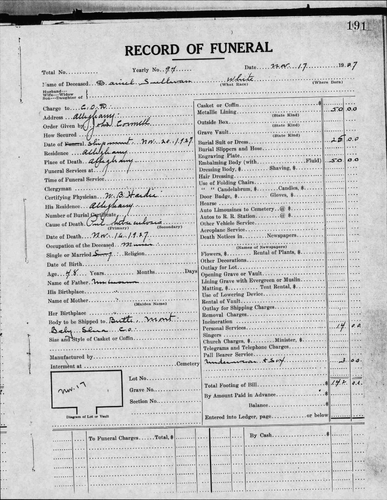 191
RECORD OF FUNERAL
Total No. Yearly No. 94 Date Nov. 17 1927
Name of Deceased Daniel Sullivan White
(What Race) (Where Born)
Husband—
Wife—Widow
Son—Daughter of
Charge to C.O.D.
Address Alleghany
Order Given by John
How Secured
Date of Funeral Shipment Nov. 20. 1927
Residence Alleghany
Place of Death Alleghany
Funeral Services at
Time of Funeral Service
Clergyman
Certifying Physician W. B. Hardie
His Residence Alleghany
Number of Burial Certificate
Cause of Death Tuberculosis
(Primary) (Secondary)
Date of Death Nov. 16. 1927
Occupation of the Deceased Miner
Single or Married Sing Religion
Date of Birth
Age 48 Years Months Days
Name of Father Unknown
His Birthplace
Name of Mother
(Maiden Name)
Her Birthplace
Body to be Shipped to Butte Mont
Size and Style of Casket or Coffin
Manufactured by
Interment at Cemetery
Nov. 17
Lot No.
Grave No.
Section No.
Diagram of Lot or Vault
Casket or Coffin
Metallic Lining 50 00
(State Kind)
Outside Box
(State Kind)
Grave Vault
(State Kind)
Burial Suit or Dress 25 00
Burial Slippers and Hose
Engraving Plate
Embalming Body (with Fluid) 50 00
Dressing Body, $ Shaving, $
Hair Dressing
Use of Folding Chairs
" " Candelabrum, $ Candles, $
Door Badge, $ Gloves, $
Hearse
Auto Limousines to Cemetery @ $
Autos to R. R. Station @ $
Other Vehicle Service
Aeroplane Service
Death Notices in Newspapers
(Names of Newspapers)
Flowers, $ Rental of Plants, $
Other Decorations
Outlay for Lot
Opening Grave or Vault
Lining Grave with Evergreen or Muslin
Matting, $ Tent Rental, $
Use of Lowering Device
Rental of Vault
Outlay for Shipping Charges
Removal Charges
Incineration
Personal Services 14 00
Singers
Church Charges, $ Minister, $
Telegrams and Telephone Charges
Pall Bearer Service
Underwear & Sox 3 00
Total Footing of Bill $ 142 00
By Amount Paid in Advance
Balance
Entered into Ledger, page or below
To Funeral Charges Total, $
By Cash $